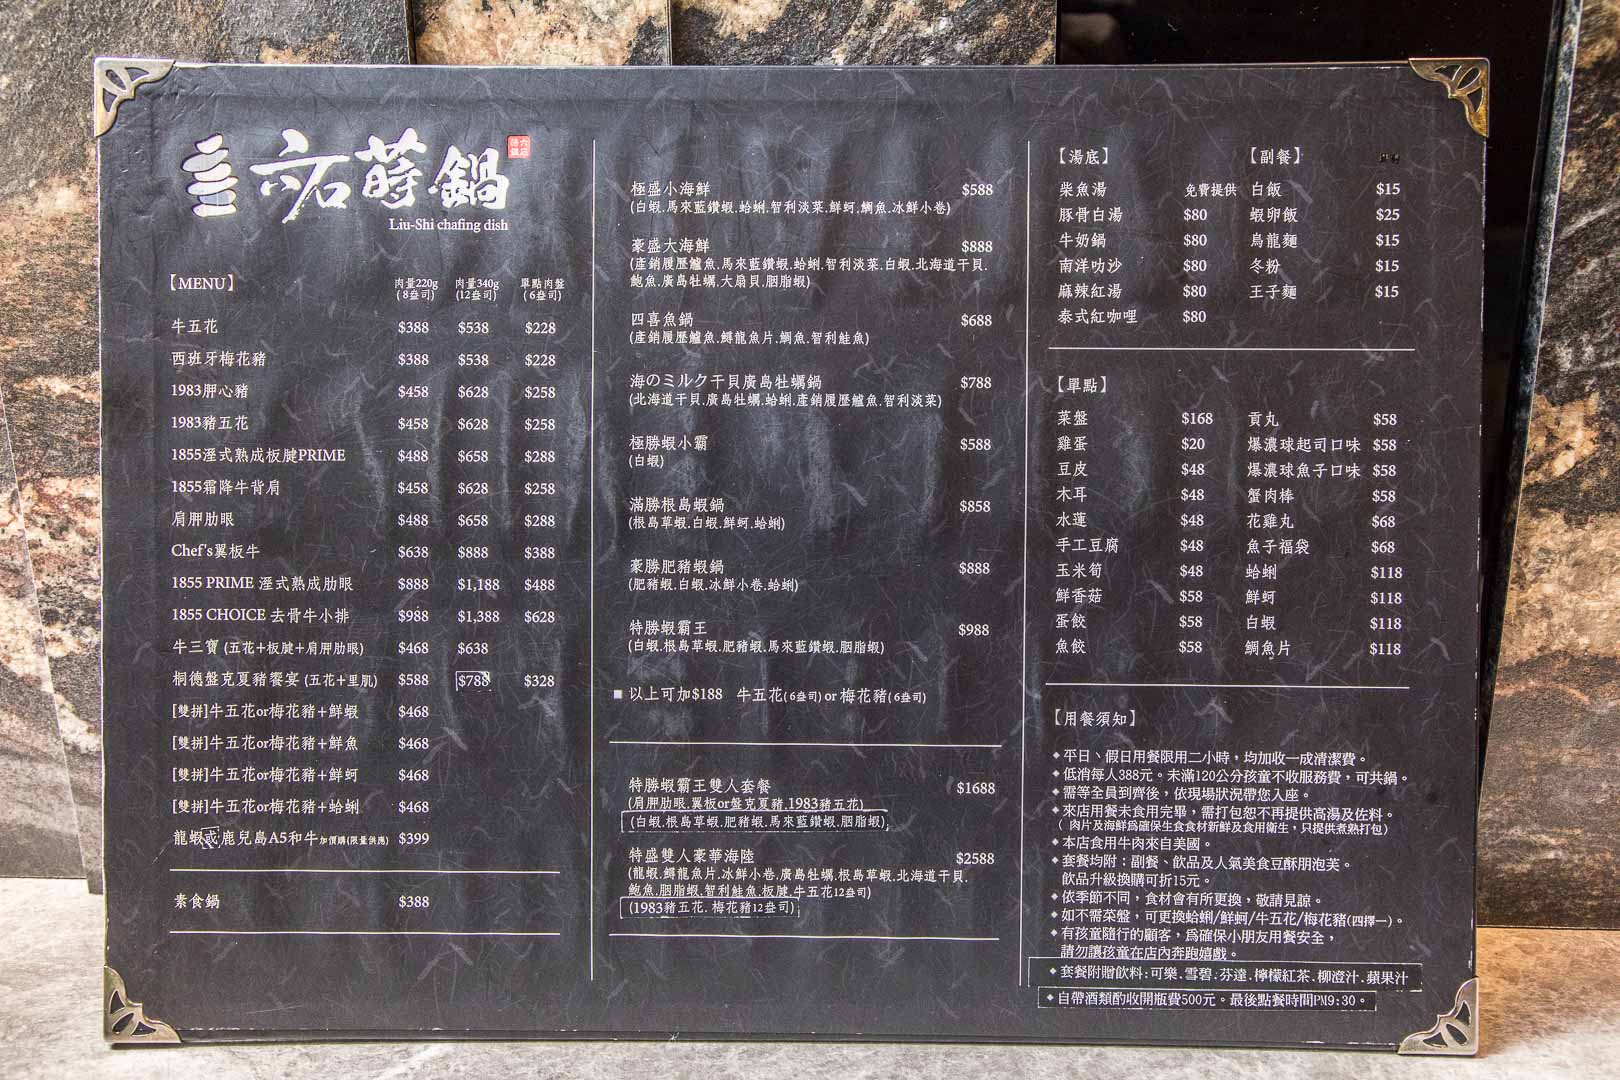 六石蒔鍋
六石蒔鍋
Liu-Shi chafing dish
【MENU】 肉量220g (8盎司) 肉量340g (12盎司) 單點肉盤 (6盎司)
牛五花 $388 $538 $228
西班牙梅花豬 $388 $538 $228
1983胛心豬 $458 $628 $258
1983豬五花 $458 $628 $258
1855溼式熟成板腱PRIME $488 $658 $288
1855霜降牛背肩 $458 $628 $258
肩胛肋眼 $488 $658 $288
Chef's翼板牛 $638 $888 $388
1855 PRIME 溼式熟成肋眼 $888 $1,188 $488
1855 CHOICE 去骨牛小排 $988 $1,388 $628
牛三寶 (五花+板腱+肩胛肋眼) $468 $638
桐德盤克夏豬饗宴 (五花+里肌) $588 $788 $328
[雙拼]牛五花or梅花豬+鮮蝦 $468
[雙拼]牛五花or梅花豬+鮮魚 $468
[雙拼]牛五花or梅花豬+鮮蚵 $468
[雙拼]牛五花or梅花豬+蛤蜊 $468
龍蝦或鹿兒島A5和牛加價購(限量供應) $399
素食鍋 $388
極盛小海鮮 $588
(白蝦.馬來藍鑽蝦.蛤蜊.智利淡菜.鮮蚵.鯛魚.冰鮮小卷)
豪盛大海鮮 $888
(產銷履歷鱸魚.馬來藍鑽蝦.蛤蜊.智利淡菜.白蝦.北海道干貝.
鮑魚.廣島牡蠣.大扇貝.胭脂蝦)
四喜魚鍋 $688
(產銷履歷鱸魚.鱘龍魚片.鯛魚.智利鮭魚)
海のミルク干貝廣島牡蠣鍋 $788
(北海道干貝.廣島牡蠣.蛤蜊.產銷履歷鱸魚.智利淡菜)
極勝蝦小霸 $588
(白蝦)
滿勝根島蝦鍋 $858
(根島草蝦.白蝦.鮮蚵.蛤蜊)
豪勝肥豬蝦鍋 $888
(肥豬蝦.白蝦.冰鮮小卷.蛤蜊)
特勝蝦霸王 $988
(白蝦.根島草蝦.肥豬蝦.馬來藍鑽蝦.胭脂蝦)
■ 以上可加$188 牛五花(6盎司) or 梅花豬(6盎司)
特勝蝦霸王雙人套餐 $1688
(肩胛肋眼.翼板or盤克夏豬.1983豬五花)
(白蝦.根島草蝦.肥豬蝦.馬來藍鑽蝦.胭脂蝦)
特盛雙人豪華海陸 $2588
(龍蝦.鱘龍魚片.冰鮮小卷.廣島牡蠣.根島草蝦.北海道干貝.
鮑魚.胭脂蝦.智利鮭魚.板腱.牛五花12盎司)
(1983豬五花. 梅花豬12盎司)
【湯底】
柴魚湯 免費提供
豚骨白湯 $80
牛奶鍋 $80
南洋叻沙 $80
麻辣紅湯 $80
泰式紅咖哩 $80
【副餐】
白飯 $15
蝦卵飯 $25
烏龍麵 $15
冬粉 $15
王子麵 $15
【單點】
菜盤 $168
雞蛋 $20
豆皮 $48
木耳 $48
水蓮 $48
手工豆腐 $48
玉米筍 $48
鮮香菇 $58
蛋餃 $58
魚餃 $58
貢丸 $58
爆濃球起司口味 $58
爆濃球魚子口味 $58
蟹肉棒 $58
花雞丸 $68
魚子福袋 $68
蛤蜊 $118
鮮蚵 $118
白蝦 $118
鯛魚片 $118
【用餐須知】
◆平日、假日用餐限用二小時，均加收一成清潔費。
◆低消每人388元。未滿120公分孩童不收服務費，可共鍋。
◆需等全員到齊後，依現場狀況帶您入座。
◆來店用餐未食用完畢，需打包恕不再提供高湯及佐料。
( 肉片及海鮮為確保生食食材新鮮及食用衛生，只提供煮熟打包)
◆本店食用牛肉來自美國。
◆套餐均附：副餐、飲品及人氣美食豆酥朋泡芙。
飲品升級換購可折15元。
◆依季節不同，食材會有所更換，敬請見諒。
◆如不需菜盤，可更換蛤蜊/鮮蚵/牛五花/梅花豬(四擇一)。
◆有孩童隨行的顧客，為確保小朋友用餐安全，
請勿讓孩童在店內奔跑嬉戲。
◆套餐附贈飲料:可樂.雪碧.芬達.檸檬紅茶.柳澄汁.蘋果汁
◆自帶酒類酌收開瓶費500元。最後點餐時間PM9:30。